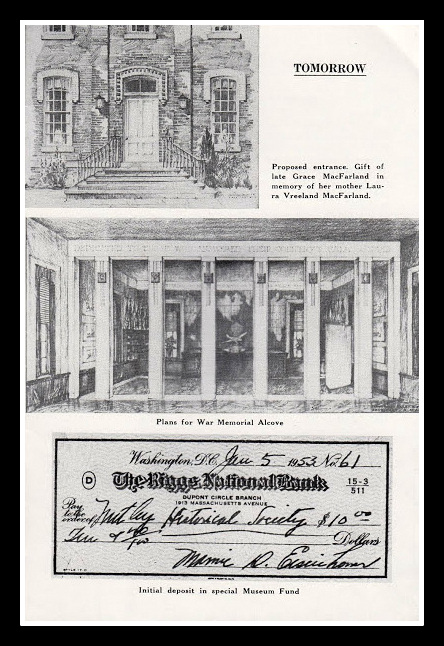 TOMORROW
Proposed entrance. Gift of
late Grace MacFarland in
memory of her mother Lau-
ra Vreeland MacFarland.
Plans for War Memorial Alcove
Washington, D.C. Jan 5 1953 No. 61
D
The Riggs National Bank
15-3
511
DUPONT CIRCLE BRANCH
1913 MASSACHUSETTS AVENUE
Pay to the order of Nutley Historical Society $10.00
Ten & 00/100 Dollars
Mamie D. Eisenhower
Initial deposit in special Museum Fund